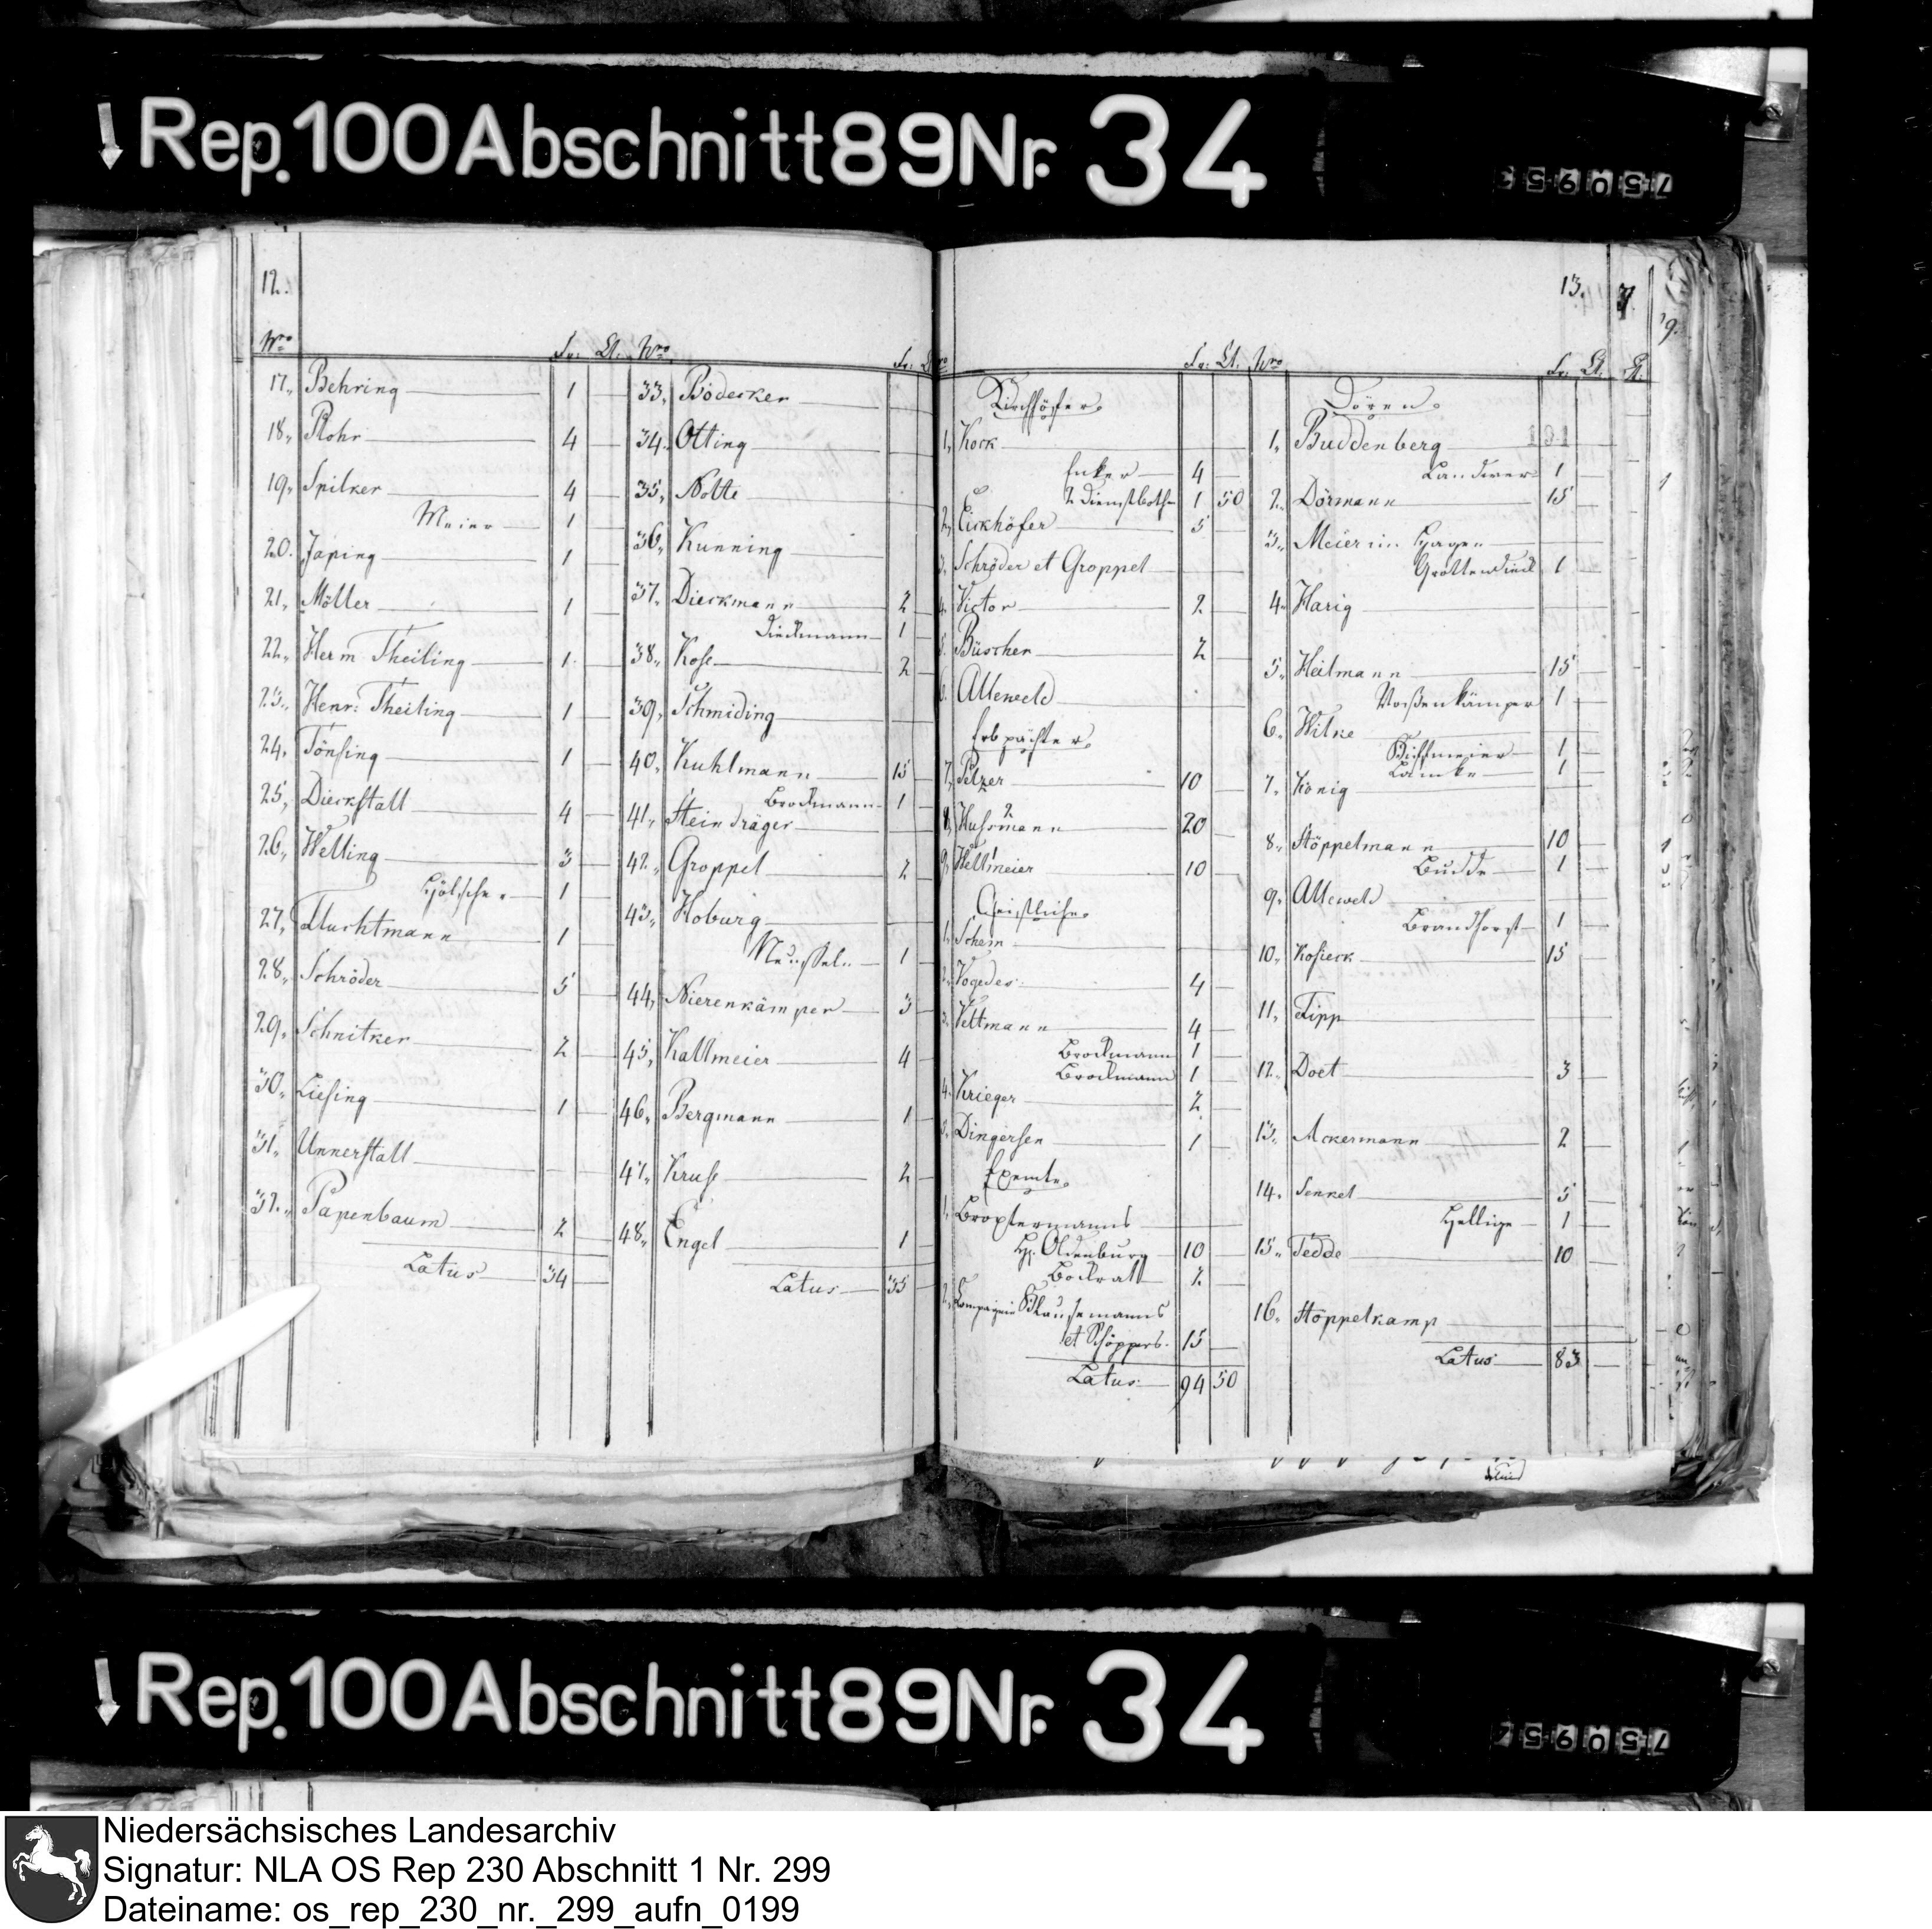 Rep. 100 Abschnitt 89 Nr. 34
12.
Nro Fr: Ct:
17., Behring 1
18., Rohr 4
19., Spilker 4
Meier 1
20. Japing 1
21., Möller 1
22., Herm Theiling 1
23., Henr: Theiling 1
24., Tönsing 1
25., Dieckstall 4
26., Welling 3
Hölscher 1
27., Fluchtmann 1
28., Schröder 5
29., Schnitker 2
30., Liesing 1
31., Unnerstall
32., Papenbaum 2
Latus 34
Nro Fr:
33., Bödecker
34., Otting
35., Nolte
36., Kunning
37., Dieckmann 2
Dieckmann 1
38., Kose 2
39., Schmiding
40., Kuhlmann 15
Brockmann 1
41., Steindräger
42., Groppel 2
43., Hoburg
1
44., Nierenkämper 3
45., Kallmeier 4
46., Bergmann 1
47., Kruse 2
48., Engel 1
Latus 35
13.
Fr: Ct:
Kirchhöfer.
1., Kock
Enker 4
2 Dienstbothen 1 50
2., Eickhöfer 5
3., Schröder et Groppel
4., Victor 2
5., Büscher 2
6., Alleweld
Erbpächter.
7., Pelzer 10
8., Husmann 20
9., Hellmeier 10
Geistliche.
1., Schem
2., Vogedes 4
3., Veltmann 4
Brockmann 1
Brockmann 1
4., Krieger 2
5., Dingersen 1
Exemte.
1., Broxtermanns
H. Oldenburg 10
Bockratt 2
2., Compagnie Klausemanns
et Schöppers 15
Latus 94 50
Nro Fr: Ct:
Dören.
1., Buddenberg
Landwer 1
2., Dörmann 15
3., Meier im Hagen
Grottendieck 1
4., Harig
5., Heilmann 15
Voßenkämper 1
6., Wilke
1
Lämke 1
7., König
8., Stöppelmann 10
Budde 1
9., Alleweld
Brandhorst 1
10., Kosieck 15
11., Tipp
12., Doet 3
13., Ackermann 2
14., Senkel 5
Hellige 1
15., Tedde 10
16., Stöppelkamp
Latus 83
Rep. 100 Abschnitt 89 Nr. 34
Niedersächsisches Landesarchiv
Signatur: NLA OS Rep 230 Abschnitt 1 Nr. 299
Dateiname: os_rep_230_nr._299_aufn_0199